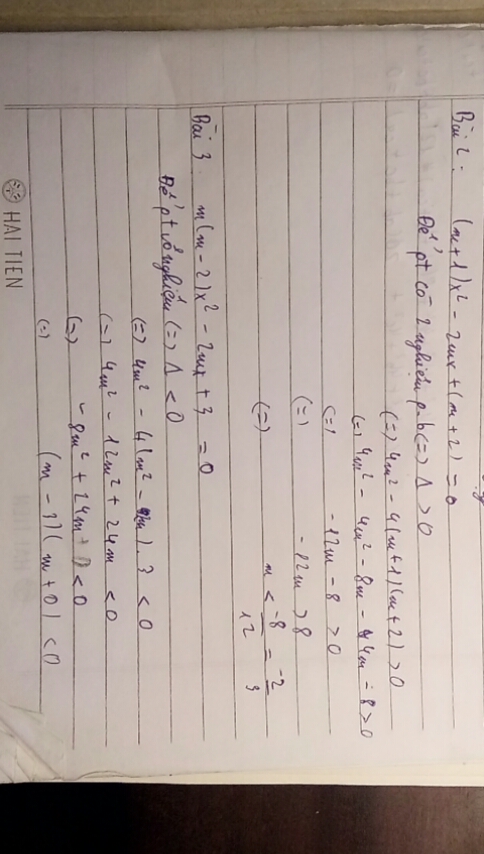 Bài 2: (m+1)x² - 2mx + (m+2) = 0
Để pt có 2 nghiệm p.b (=) Δ > 0
(=) 4m² - 4(m+1)(m+2) > 0
(=) 4m² - 4m² - 8m - 4m - 8 > 0
(=) -12m - 8 > 0
(=) -12m > 8
(=) m < -8/12 = -2/3
Bài 3. m(m-2)x² - 2mx + 3 = 0
Để pt vô nghiệm (=) Δ < 0
(=) 4m² - 4(m² - 2m).3 < 0
(=) 4m² - 12m² + 24m < 0
(=) -8m² + 24m + 0 < 0
(=) (m - 3)(m + 0) < 0
HẢI TIẾN